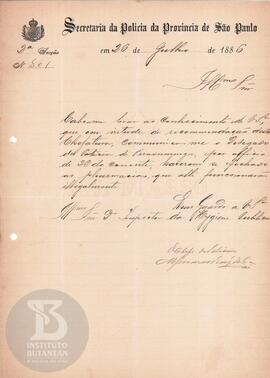 Secretaria da Policia da Provincia de São Paulo
2ª Secção
em 26 de Julho de 1886
Nº 561
Illmo Snr
Cabe-me levar ao conhecimento de V. Sª
que em virtude de recommendação desta
Chefatura, communicou-me o Delegado
de Policia de por officio
de 22 do corrente, haverem se fechado
as pharmacias, que alli funccionavão
illegalmente
Deus Guarde a V. Sª
Illmo Snr Dr Inspector da Hygiene Publica
O Chefe de Policia
INSTITUTO
BUTANTAN